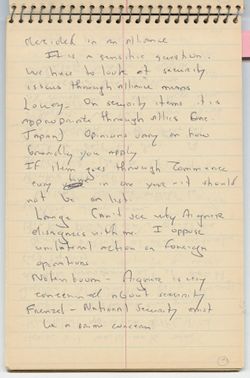 decided in an alliance
It is a sensitive question.
We have to look at security
issues through alliance means
Lowery - On security items it is
appropriate through allies (ie
Japan) Opinions vary on how
broadly you apply
If item goes through Commerce
every time in one year - it should
not be on list.
Lange Can't see why Aigner
disagrees with me. I oppose
unilateral action on foreign
operations
Notenboom - Aigner is very
concerned about security
Frenzel - National Security must
be a prime concern